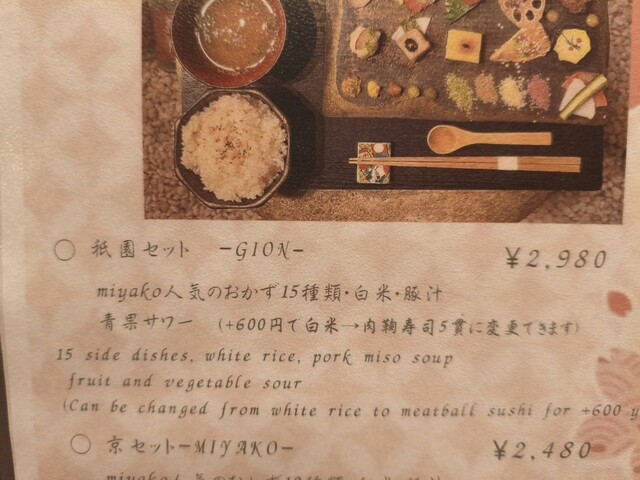 ○ 祇園セット -GION- ¥2,980
miyako人気のおかず15種類・白米・豚汁
青果サワー (+600円で白米→肉鞠寿司5貫に変更できます)
15 side dishes, white rice, pork miso soup
fruit and vegetable sour
(Can be changed from white rice to meatball sushi for +600 y
○ 京セット-MIYAKO- ¥2,480
miyako人気のおかず